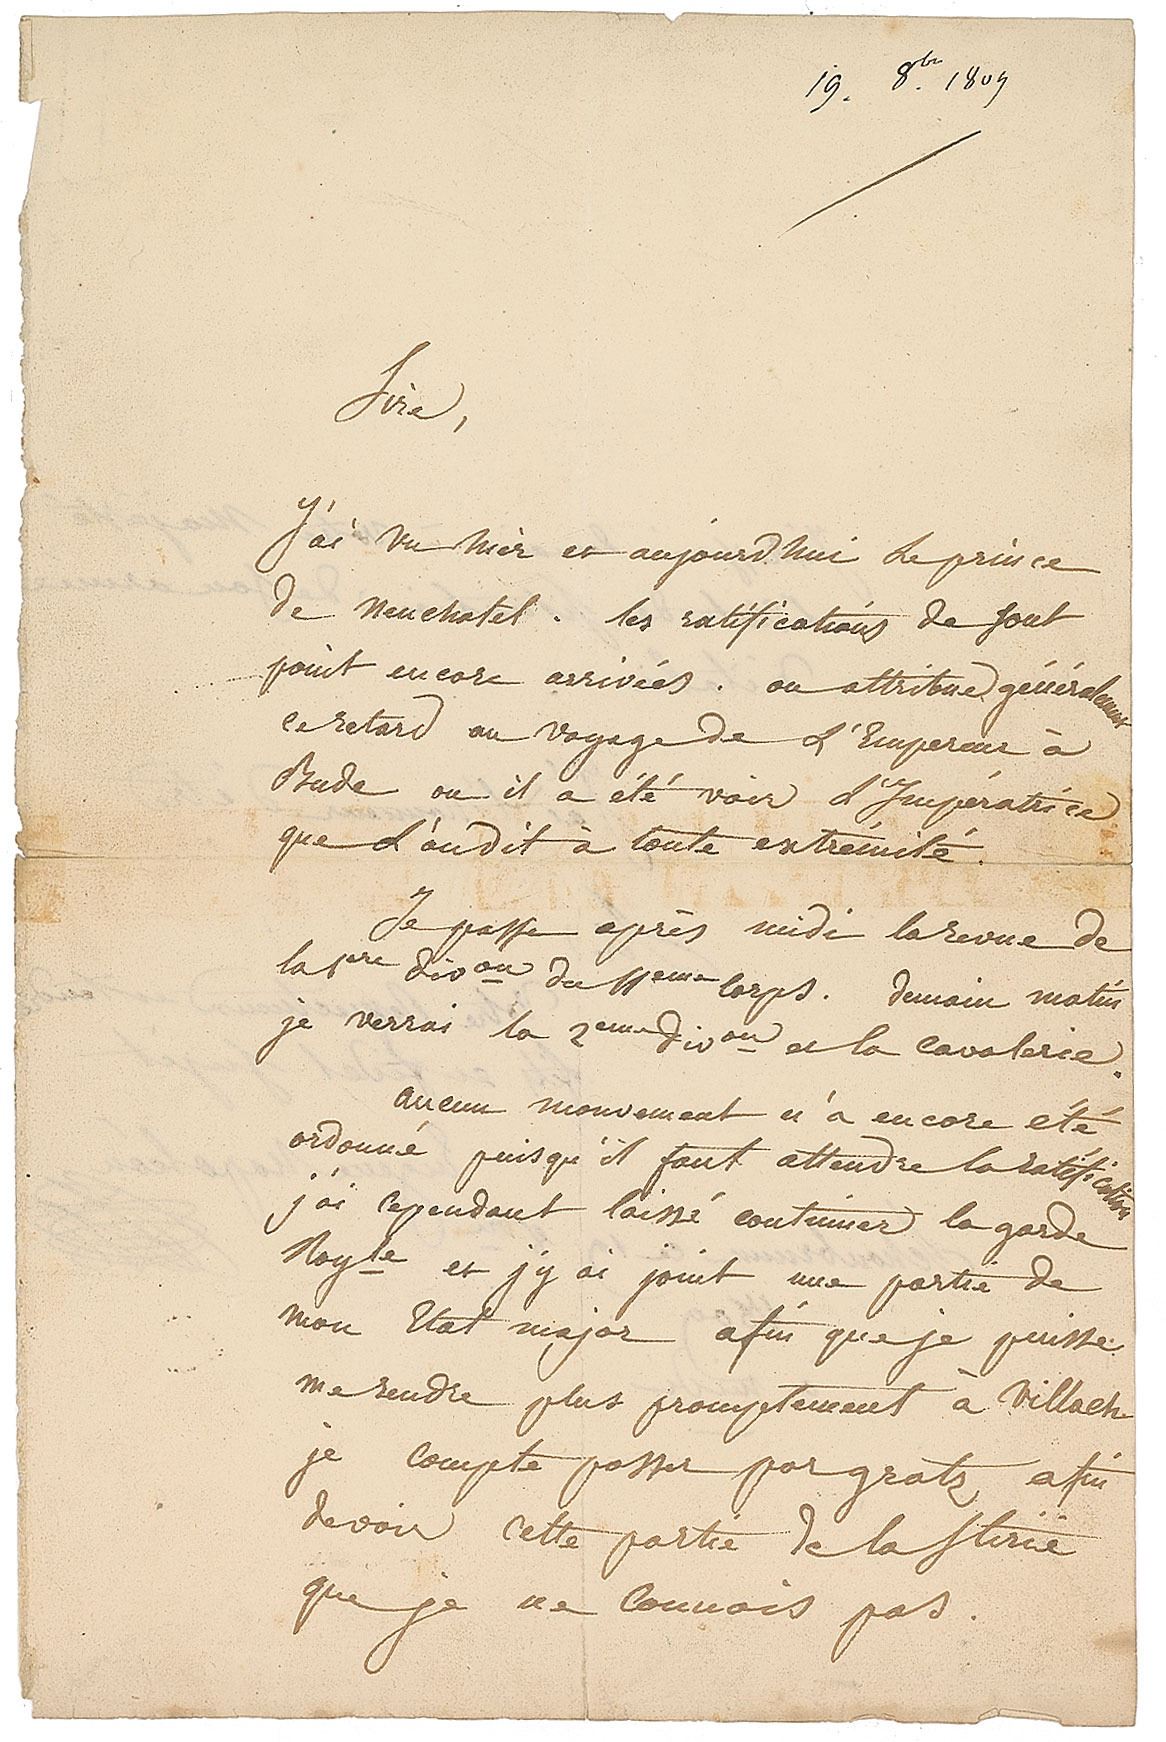 19. 8bre 1809
Sire,
J'ai vu hier et aujourd'hui le prince
de Neuchatel. les ratifications de sont
point encore arrivées. on attribue généralement
ce retard au voyage de L'Empereur à
Bude ou il a été voir L'Impératrice
que L'on dit à toute extrémité.
Je passe après midi la revue de
la 1ere divon du 11eme Corps. demain matin
je verrai la 2eme divon et la cavalerie.
aucun mouvement n'a encore été
ordonné puisqu'il faut attendre la ratification
j'ai cependant laissé continuer la garde
Royle et j'y ai joint une partie de
mon Etat major afin que je puisse
me rendre plus promptement à Villach
je compte passer par gratz afin
de voir cette partie de la Stirie
que je ne connois pas.